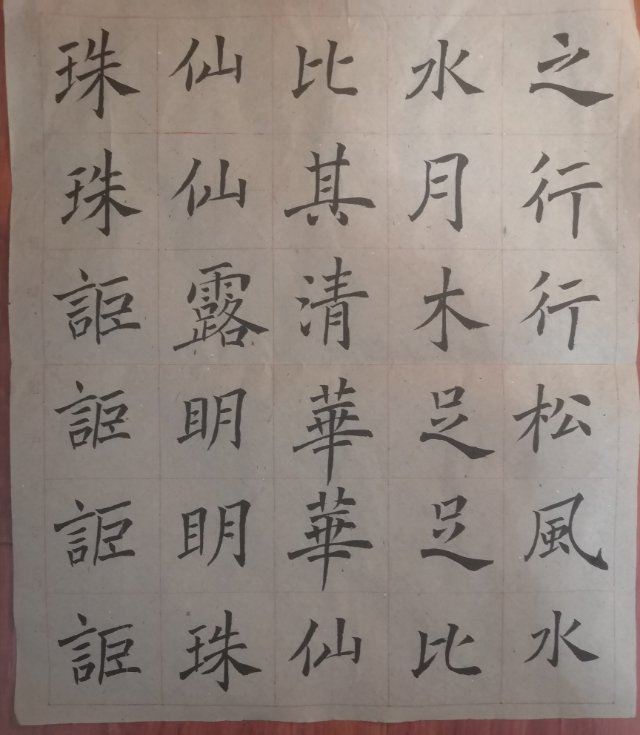 之行行松風水
水月木足足比
比其清華華仙
仙仙露明明珠
珠珠詎詎詎詎